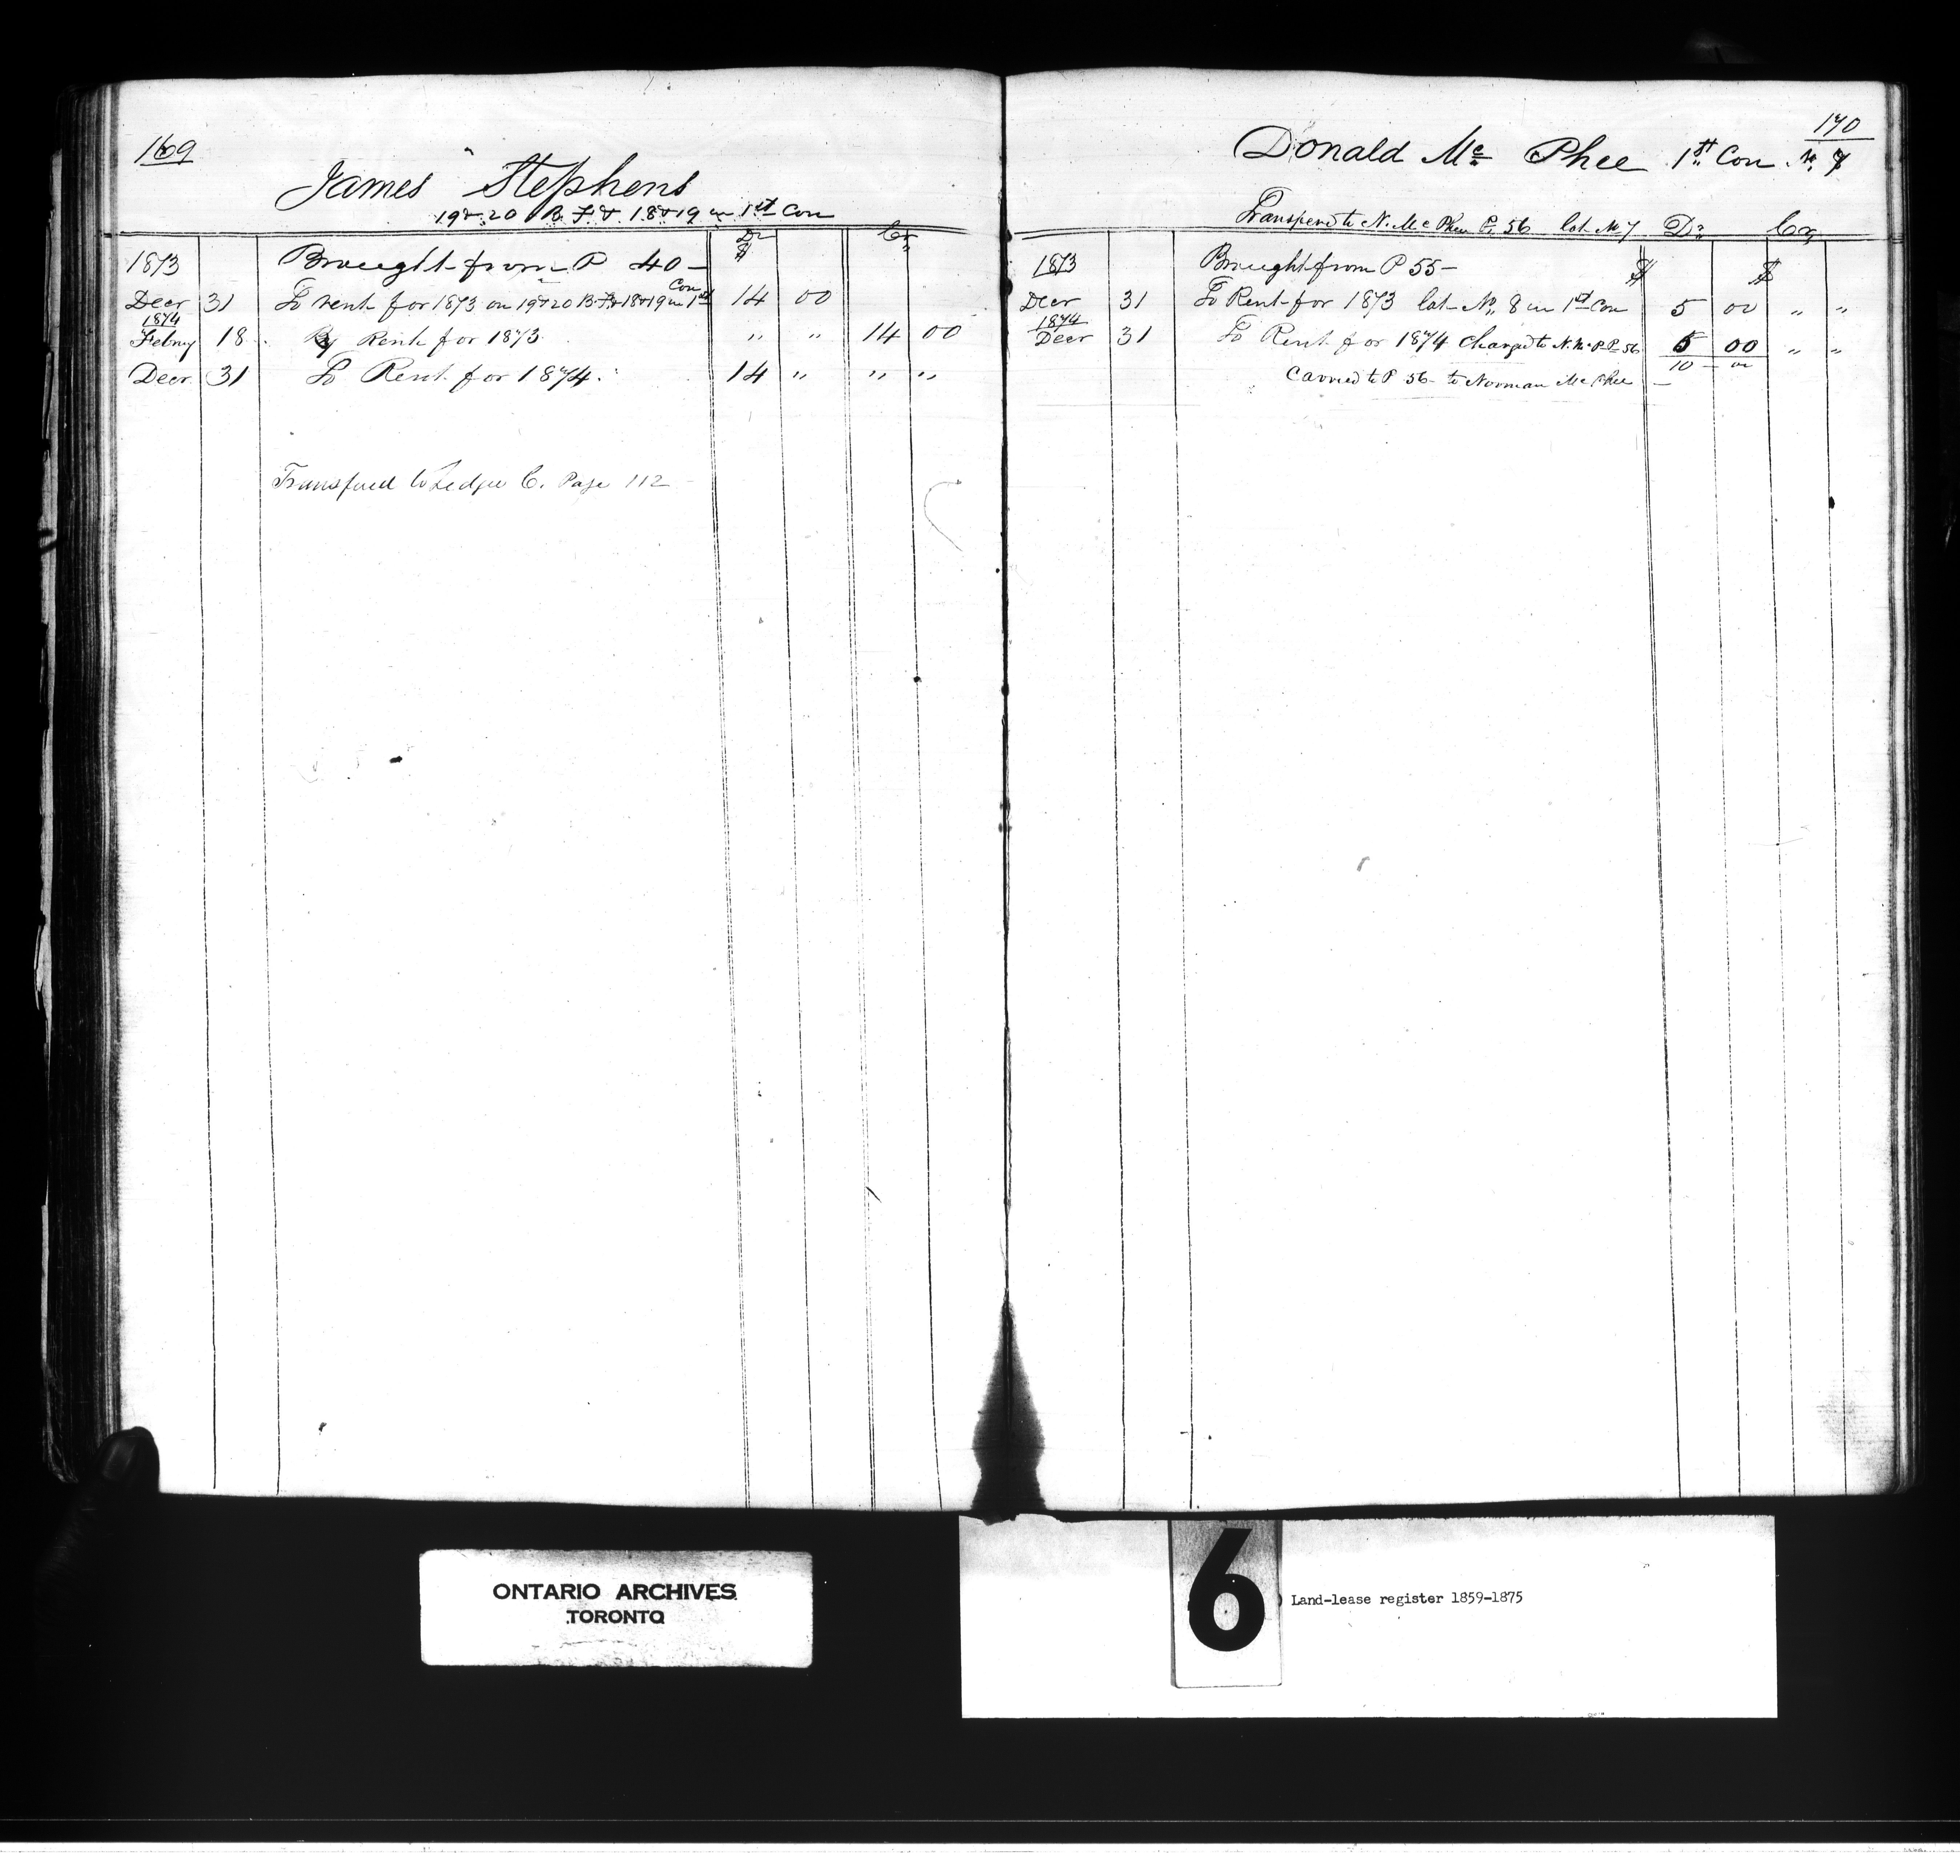 169
James Stephens
19 & 20 B. F. & 18 & 19 in 1st Con
Dr Cr
$
1873 Brought from P 40 –
Decr 31 To rent for 1873 on 19 & 20 B. F. & 18 & 19 in 1st Con 14 00
1874
Febry 18 By Rent for 1873 " " 14 00
Decr 31 To Rent for 1874. 14 " " "
Transfued to Ledger C. Page 112
170
Donald Mc Phee 1st Con. No 7
Transpered to N. Mc Phee P. 56 lot No 7 Dr Cr
1873 Brought from P 55 – $ $
Decr 31 To Rent for 1873 lot No 8 in 1st Con 5 00 " "
1874
Decr 31 To Rent for 1874 Charged to N. Mc P P. 56 5 00 " "
10 – 00
Carried to P 56 – to Norman Mc Phee –
ONTARIO ARCHIVES
TORONTO
6
Land-lease register 1859-1875